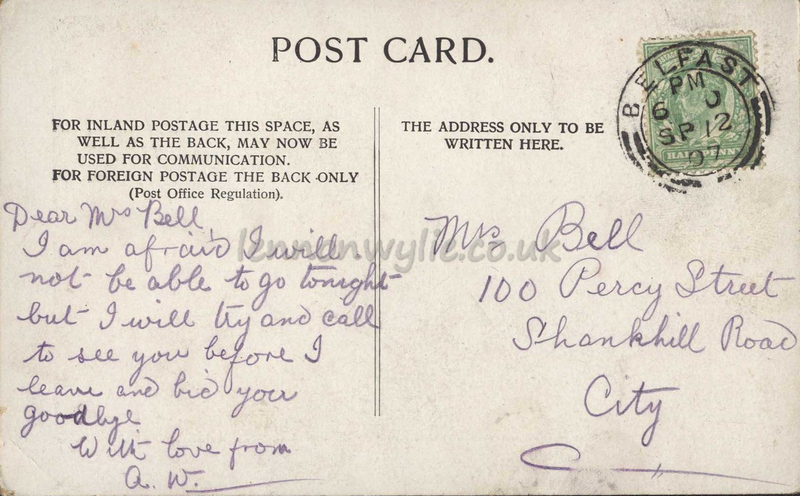 POST CARD.
FOR INLAND POSTAGE THIS SPACE, AS
WELL AS THE BACK, MAY NOW BE
USED FOR COMMUNICATION.
FOR FOREIGN POSTAGE THE BACK ONLY
(Post Office Regulation).
THE ADDRESS ONLY TO BE
WRITTEN HERE.
BELFAST
PM
SP 12
07
HALFPENNY
Dear Mrs Bell,
I am afraid I will
not be able to go tonight
but I will try and call
to see you before I
leave and bid you
goodbye
With love from
A. W.
Mrs Bell
100 Percy Street
Shankhill Road
City
lennonwylie.co.uk